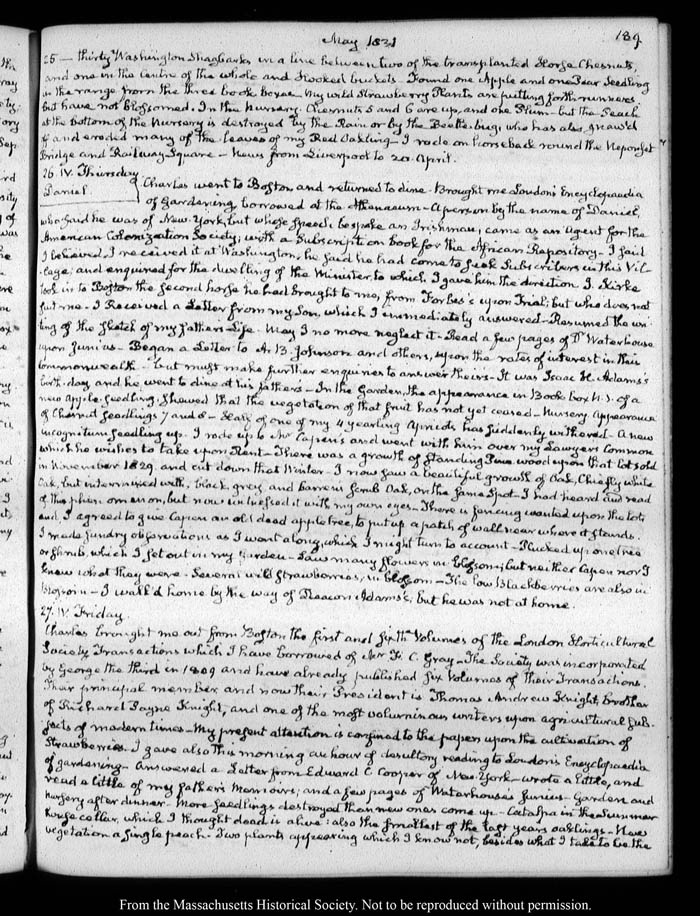 May 1831 189.
25 — thirty Washington Shagbarks in a line between two of the transplanted Horse Chesnuts,
and one in the centre of the whole and Hooked buckets. Found one Apple and one Pear Seedling
in the range from the three book boxes. My wild Strawberry Plants are putting forth runners
but have not blossomed. In the Nursery, Chesnuts 5 and 6 are up, and one Plum — but the Peach
at the bottom of the Nursery is destroyed by the Rain or by the Beetle bug, who has also gnaw'd
and eroded many of the leaves of my Red Oakling — I rode on horseback round the Neponset
Bridge and Railway Square — News from Liverpool to 20 April.
26. IV. Thursday Charles went to Boston and returned to dine. Brought me Loudon's Encyclopaedia
Daniel of Gardening borrowed at the Athenaeum — A person by the name of Daniel,
who said he was of New-York, but whose speech bespoke an Irishman; came as an Agent for the
American Colonization Society, with a Subscription book for the African Repository — I said
I believed I received it at Washington; he said he had come to seek Subscribers in this Vil-
lage, and enquired for the dwelling of the Minister to which I gave him the direction. J. Kirke
took in to Boston the second horse he had brought to me, from Forbes's upon Trial; but who does not
suit me. I Received a Letter from my Son, which I immediately answered — Resumed the wri-
ting of the Sketch of my father's Life. May I no more neglect it — Read a few pages of Dr. Waterhouse
upon Junius — Began a Letter to A. B. Johnson and others, upon the rates of interest in their
Commonwealth — but must make further enquiries to answer theirs — It was Isaac H. Adams's
birth-day, and he went to dine at his father's — In the Garden, the appearance in Book box N. 5. of a
new Apple-seedling, shewed that the vegetation of that fruit has not yet ceased — Nursery appearance
of Chesnut seedlings 7 and 8 — Half of one of my 4 yearling Apricots has suddenly withered — A new
incognitum seedling up. I rode up to Mr Capen's and went with him over my Lawyers Common
which he wishes to take upon Rent — There was a growth of standing Pine wood upon that lot sold
in November 1829. and cut down that Winter — I now saw a beautiful growth of Oak, Chiefly white
Oak, but intermixed with, black, grey and barren scrub Oak, on the same Spot — I had heard and read
of this phenomenon, but now witnessed it with my own eyes — There is fencing wanted upon the lot
and I agreed to give Capen an old dead apple tree, to put up a patch of wall near where it stands.
I made sundry observations as I went along, which I might turn to account — Plucked up one tree
or shrub, which I set out in my Garden — Saw many flowers in blossom; but neither Capen nor I
knew what they were. Several wild strawberries, in blossom — The low Blackberries are also in
blossom — I walk'd home by the way of Deacon Adams's; but he was not at home.
27. IV. Friday.
Charles brought me out from Boston the first and sixth Volumes of the London Horticultural
Society Transactions which I have borrowed of Mr F. C. Gray — The Society was incorporated
by George the third in 1809 and have already published six Volumes of their Transactions.
Their principal member and now their President is Thomas Andrew Knight, brother
of Richard Payne Knight, and one of the most voluminous writers upon agricultural sub-
jects of modern times — My present attention is confined to the papers upon the cultivation of
Strawberries. I gave also this morning an hour of desultory reading to Loudon's Encyclopaedia
of gardening — Answered a Letter from Edward C Cooper of New-York — wrote a little, and
read a little of my father's Memoirs; and a few pages of Waterhouse's Junius — Garden and
nursery after dinner. More seedlings destroyed than new ones come up — Catalpa in the Summer
house cellar, which I thought dead is alive: also the smallest of the last years oaklings — New
vegetation a single peach — Two plants appearing which I know not, besides what I take to be the
From the Massachusetts Historical Society. Not to be reproduced without permission.